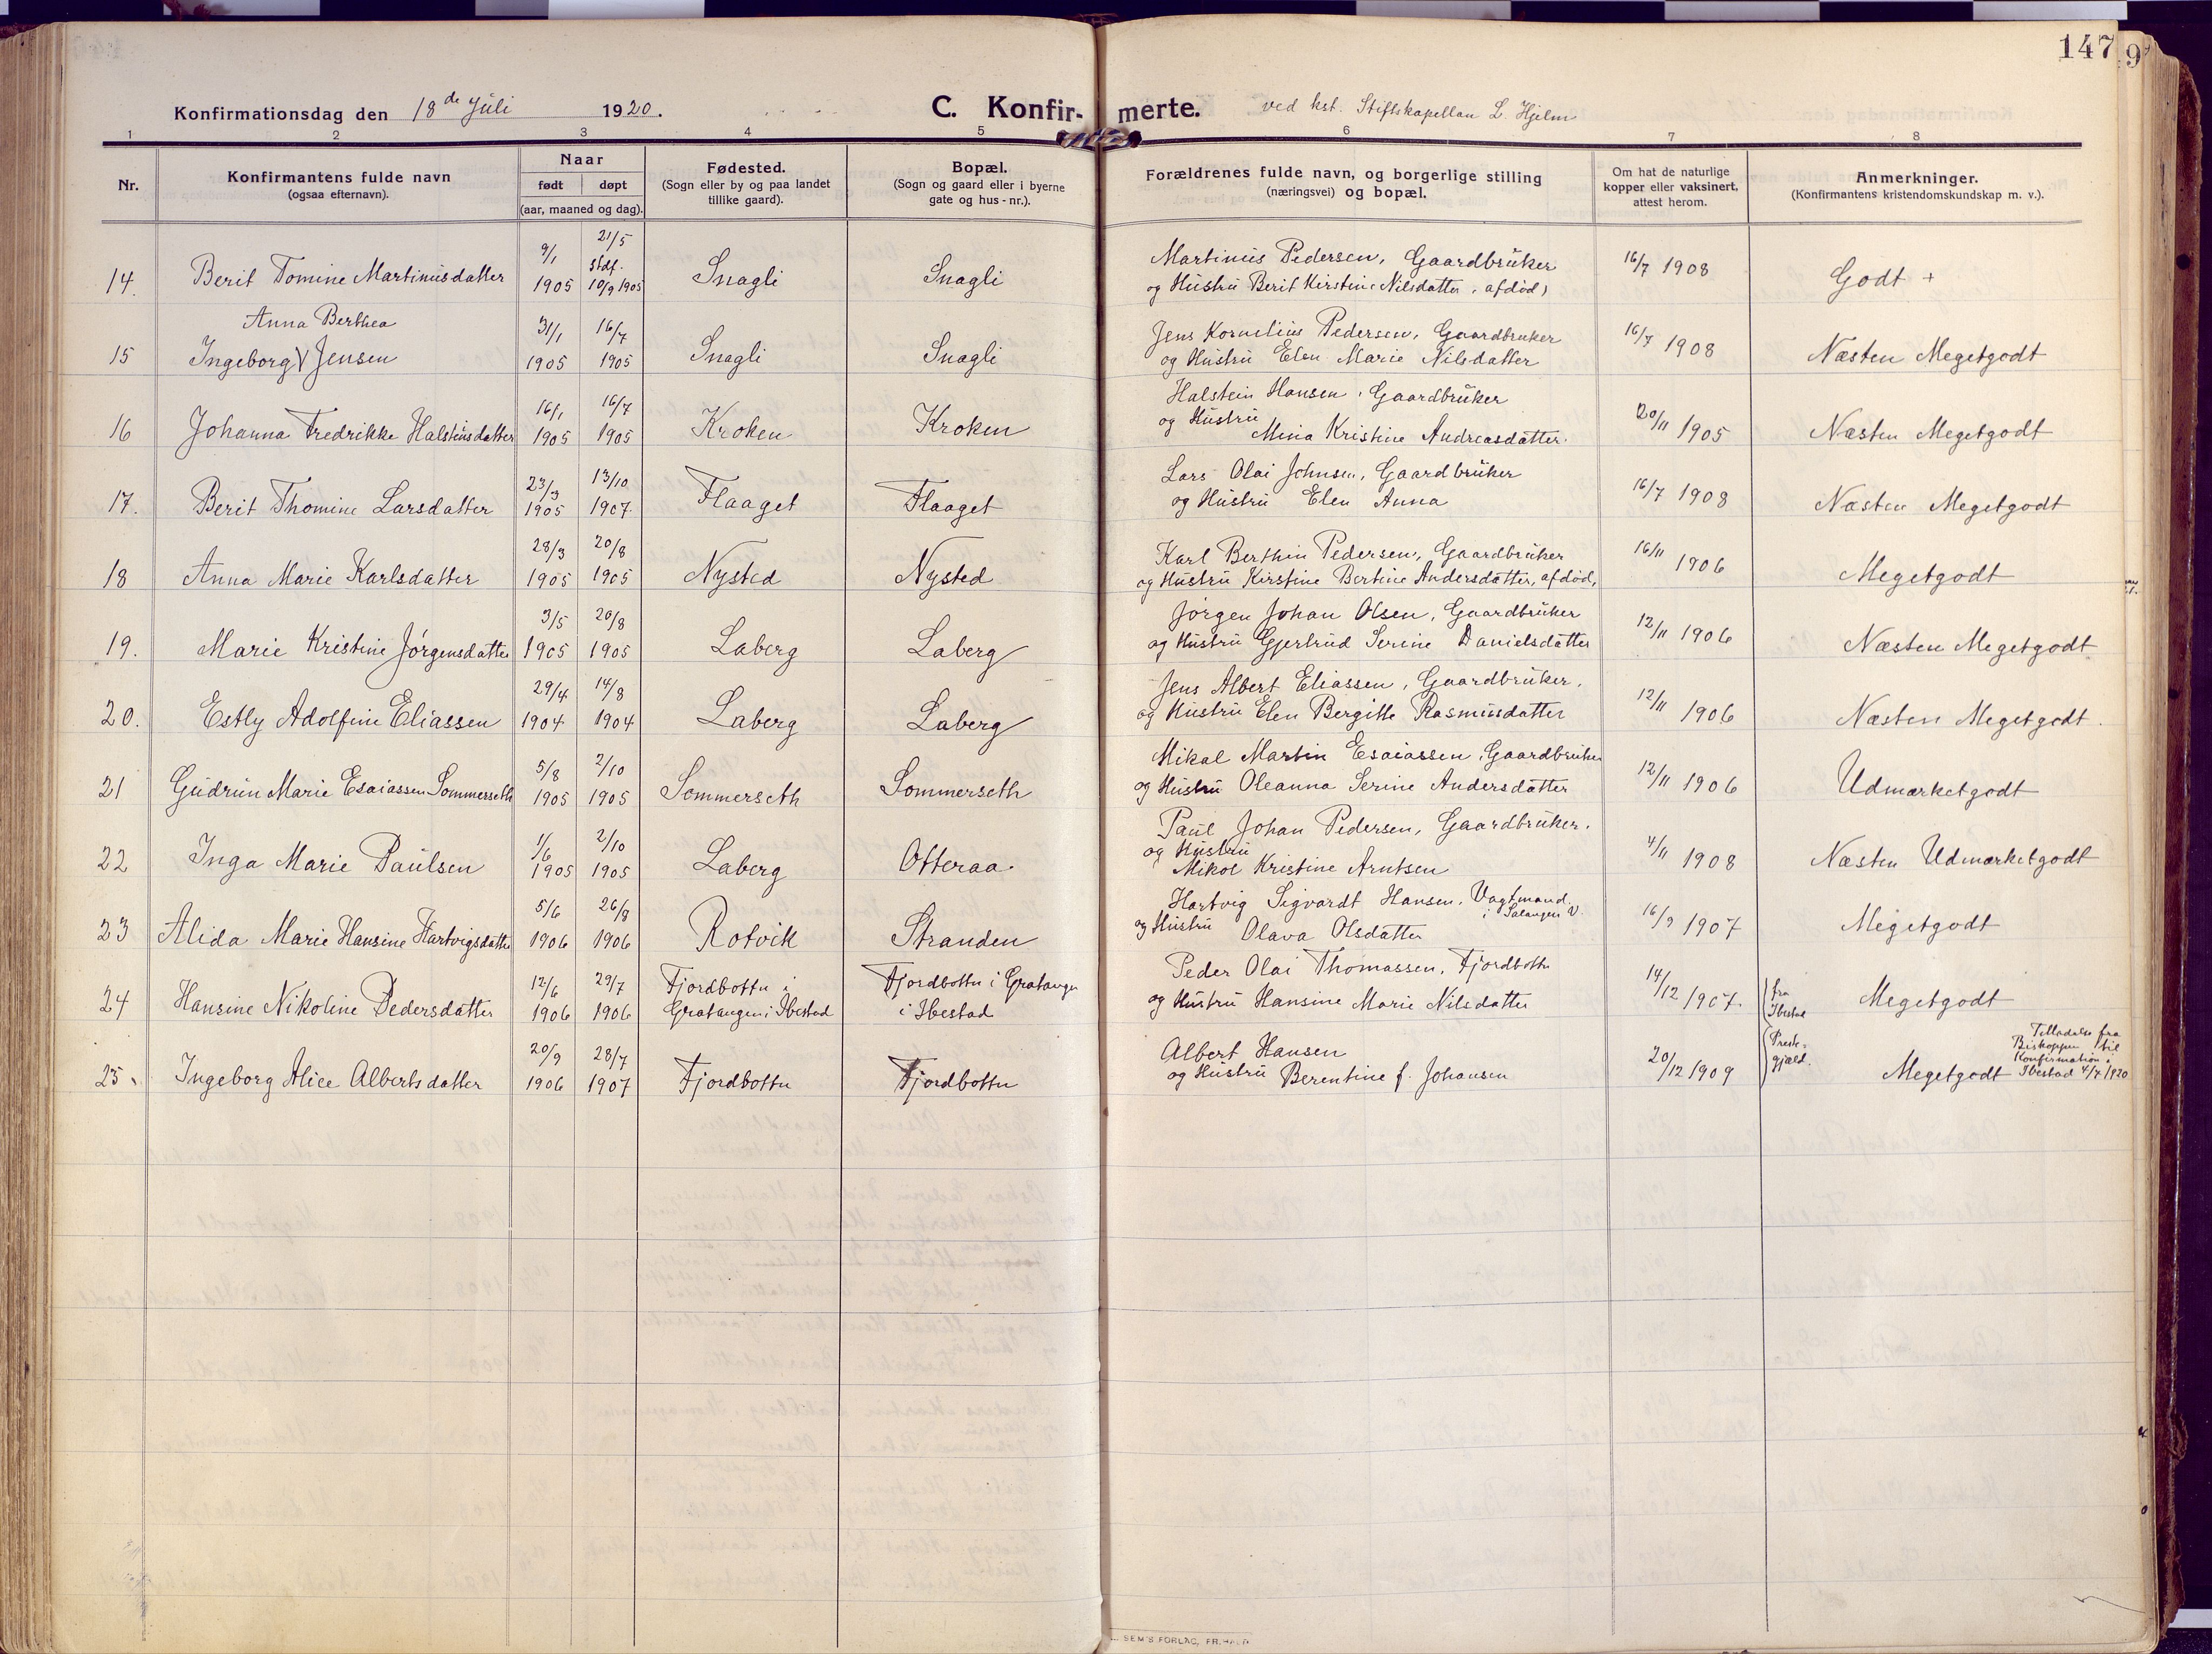 147
9
Konfirmationsdag den 18de Juli 1920.
C. Konfirmerte.
ved kst. Stiftskapellan L. Hjelm
1 2 3 4 5 6 7 8
Nr.
Konfirmantens fulde navn
(ogsaa efternavn).
Naar
født døpt
(aar, maaned og dag).
Fødested.
(Sogn eller by og paa landet
tillike gaard).
Bopæl.
(Sogn og gaard eller i byerne
gate og hus-nr.).
Forældrenes fulde navn, og borgerlige stilling
(næringsvei) og bopæl.
Om hat de naturlige
kopper eller vaksinert,
attest herom.
Anmerkninger.
(Konfirmantens kristendomskundskap m. v.).
14. Berit Tomine Martinusdatter 9/1 1905 21/5 stdf. 10/9 1905 Snagli Snagli
Martinus Pedersen, Gaardbruker
og Hustru Berit Kirstine Nilsdatter, afdød) 16/7 1908 Godt +
Anna Berthea
15 Ingeborg V Jensen 31/1 1905 16/7 1905 Snagli Snagli
Jens Kornelius Pedersen, Gaardbruker
og Hustru Elen Marie Nilsdatter 16/7 1908 Næsten Megetgodt
16 Johanna Fredrikke Halsteinsdatter 16/1 1905 16/7 1905 Kroken Kroken
Halstein Hansen, Gaardbruker
og Hustru
Mina Kristine Andreasdatter. 20/11 1905 Næsten Megetgodt
17. Berit Thomine Larsdatter 23/3 1905 13/10 1907 Flaaget Flaaget
Lars Olai Johnsen, Gaardbruker
og Hustru Elen Anna 16/7 1908 Næsten Megetgodt
18 Anna Marie Karlsdatter 28/3 1905 20/8 1905 Nysted Nysted
Karl Berthin Pedersen, Gaardbruker
og Hustru Kirstine Bertine Andersdatter, afdød, 16/11 1906 Megetgodt
19. Marie Kristine Jørgensdatter 3/5 1905 20/8 1905 Laberg Laberg
Jørgen Johan Olsen, Gaardbruker
og Hustru Gjertrud Serine Danielsdatter 12/11 1906 Næsten Megetgodt
20. Estly Adolfine Eliassen 29/4 1904 14/8 1904 Laberg Laberg
Jens Albert Eliassen, Gaardbruker,
og Hustru Elen Bergitte Rasmusdatter 12/11 1906 Næsten Megetgodt.
21 Gudrun Marie Esaiassen Sommerseth 5/8 1905 2/10 1905 Sommerseth Sommerseth
Mikal Martin Esaiassen, Gaardbruker
og Hustru Oleanna Serine Andersdatter 12/11 1906 Udmærketgodt
22 Inga Marie Paulsen 1/6 1905 2/10 1905 Laberg Otteraa
Paul Johan Pedersen, Gaardbruker.
og Hustru
Mikol Kristine Arntsen 4/11 1908 Næsten Udmærketgodt
23 Alida Marie Hansine Hartvigsdatter 5/6 1906 26/8 1906 Rotvik Stranden
Hartvig Sigvardt Hansen, Vagtmand.
i Salangen V.
og Hustru Olava Olsdatter 16/9 1907 Megetgodt
24 Hansine Nikoline Pedersdatter 12/6 1906 29/7 1906 Fjordbotten i
Gratangen i Ibestad
Fjordbotten i Gratangen
i Ibestad
Peder Olai Thomassen, Fjordbotten
og Hustru Hansine Marie Nilsdatter 14/12 1907. fra
Ibestad Megetgodt
25. Ingeborg Alice Albertsdatter 20/9 1906 28/7 1907 Fjordbotten Fjordbotten
Albert Hansen
og Hustru Berentine f. Johansen 20/12 1909 Preste-
gjæld. Megetgodt
Tilladelse fra
Biskoppen til
Konfirmation i
Ibestad 4/7 1920
SEM'S FORLAG, FR.HALD